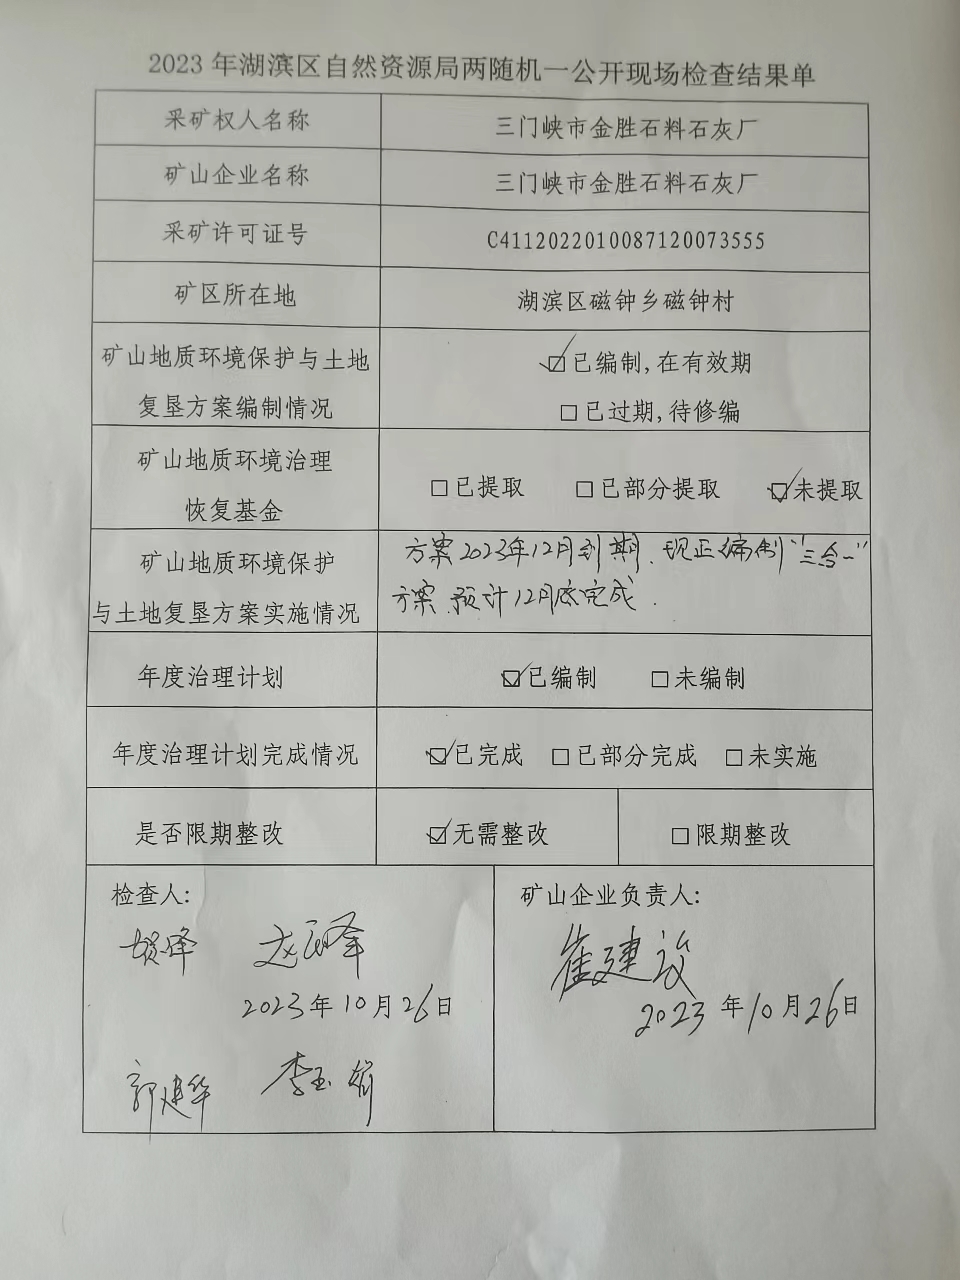 2023年湖滨区自然资源局两随机一公开现场检查结果单
采矿权人名称 三门峡市金胜石料石灰厂
矿山企业名称 三门峡市金胜石料石灰厂
采矿许可证号 C4112022010087120073555
矿区所在地 湖滨区磁钟乡磁钟村
矿山地质环境保护与土地
复垦方案编制情况
☑已编制,在有效期
□已过期,待修编
矿山地质环境治理
恢复基金
□已提取 □已部分提取 ☑未提取
矿山地质环境保护
与土地复垦方案实施情况
方案2023年12月到期.现正编制"三合一"
方案.预计12月底完成.
年度治理计划 ☑已编制 □未编制
年度治理计划完成情况 ☑已完成 □已部分完成 □未实施
是否限期整改 ☑无需整改 □限期整改
检查人:
2023年10月26日
郭建华 李玉
矿山企业负责人:
崔建设
2023年10月26日